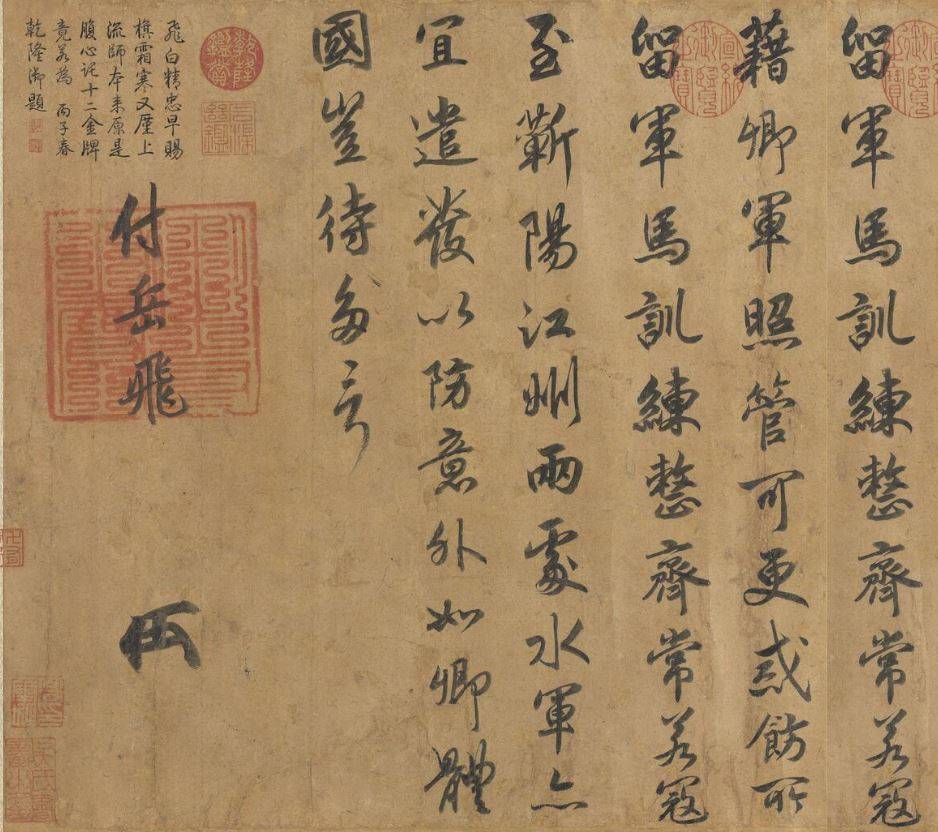 留軍馬訓練整齊常若寇
藉卿軍照管可更戒飭所
留軍馬訓練整齊常若寇
至蘄陽江州兩處水軍亦
宜遣發以防意外如卿體
國豈待多言
付岳飛
飛白精忠早賜
霜寒又上
流師本來原是
腹心託十二金牌
竟若為 丙子春
乾隆御題
乾隆鑑賞